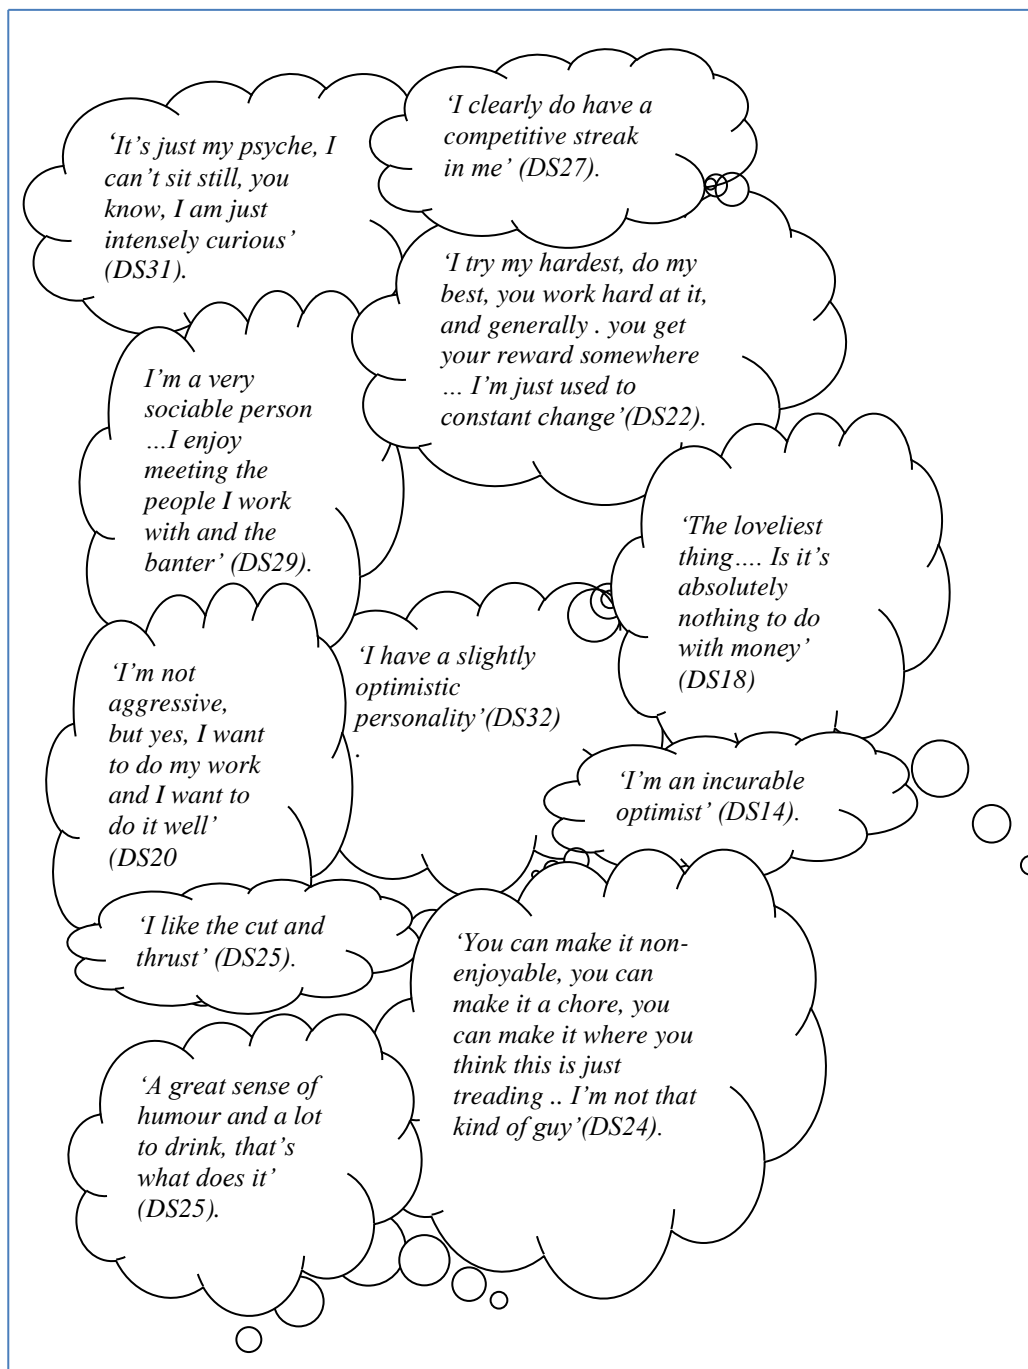 ‘It’s just my psyche, I
can’t sit still, you
know, I am just
intensely curious’
(DS31).
‘I clearly do have a
competitive streak
in me’ (DS27).
‘I try my hardest, do my
best, you work hard at it,
and generally . you get
your reward somewhere
… I’m just used to
constant change’(DS22).
I’m a very
sociable person
…I enjoy
meeting the
people I work
with and the
banter’ (DS29).
‘The loveliest
thing…. Is it’s
absolutely
nothing to do
with money’
(DS18)
‘I’m not
aggressive,
but yes, I want
to do my work
and I want to
do it well’
(DS20
‘I have a slightly
optimistic
personality’(DS32)
.
‘I’m an incurable
optimist’ (DS14).
‘I like the cut and
thrust’ (DS25).
‘You can make it non-
enjoyable, you can
make it a chore, you
can make it where you
think this is just
treading .. I’m not that
kind of guy’(DS24).
‘A great sense of
humour and a lot
to drink, that’s
what does it’
(DS25).